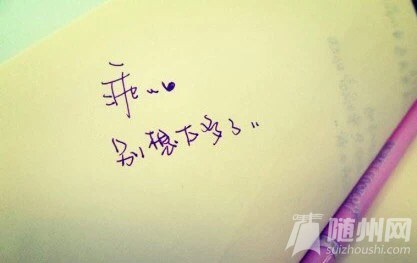 乖...
别想太多了..
随州网
suizhoushi.com